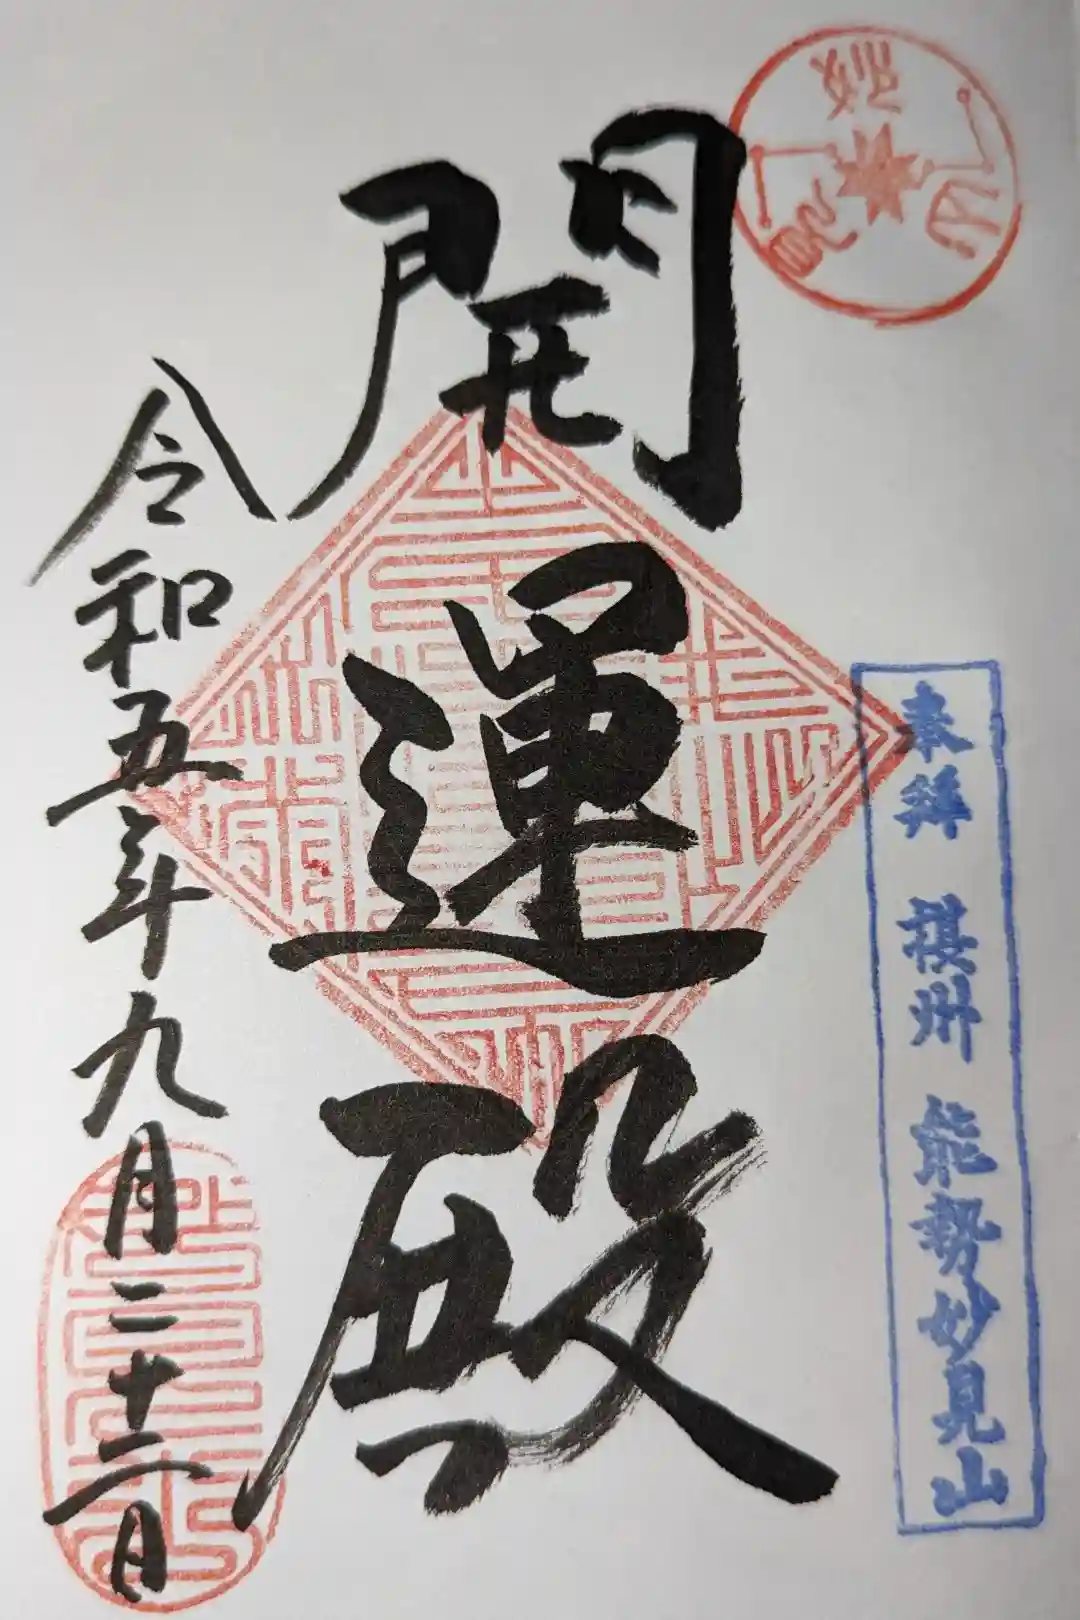 奉拝 摂州 能勢妙見山
開運殿
令和五年九月二十二日
妙見山